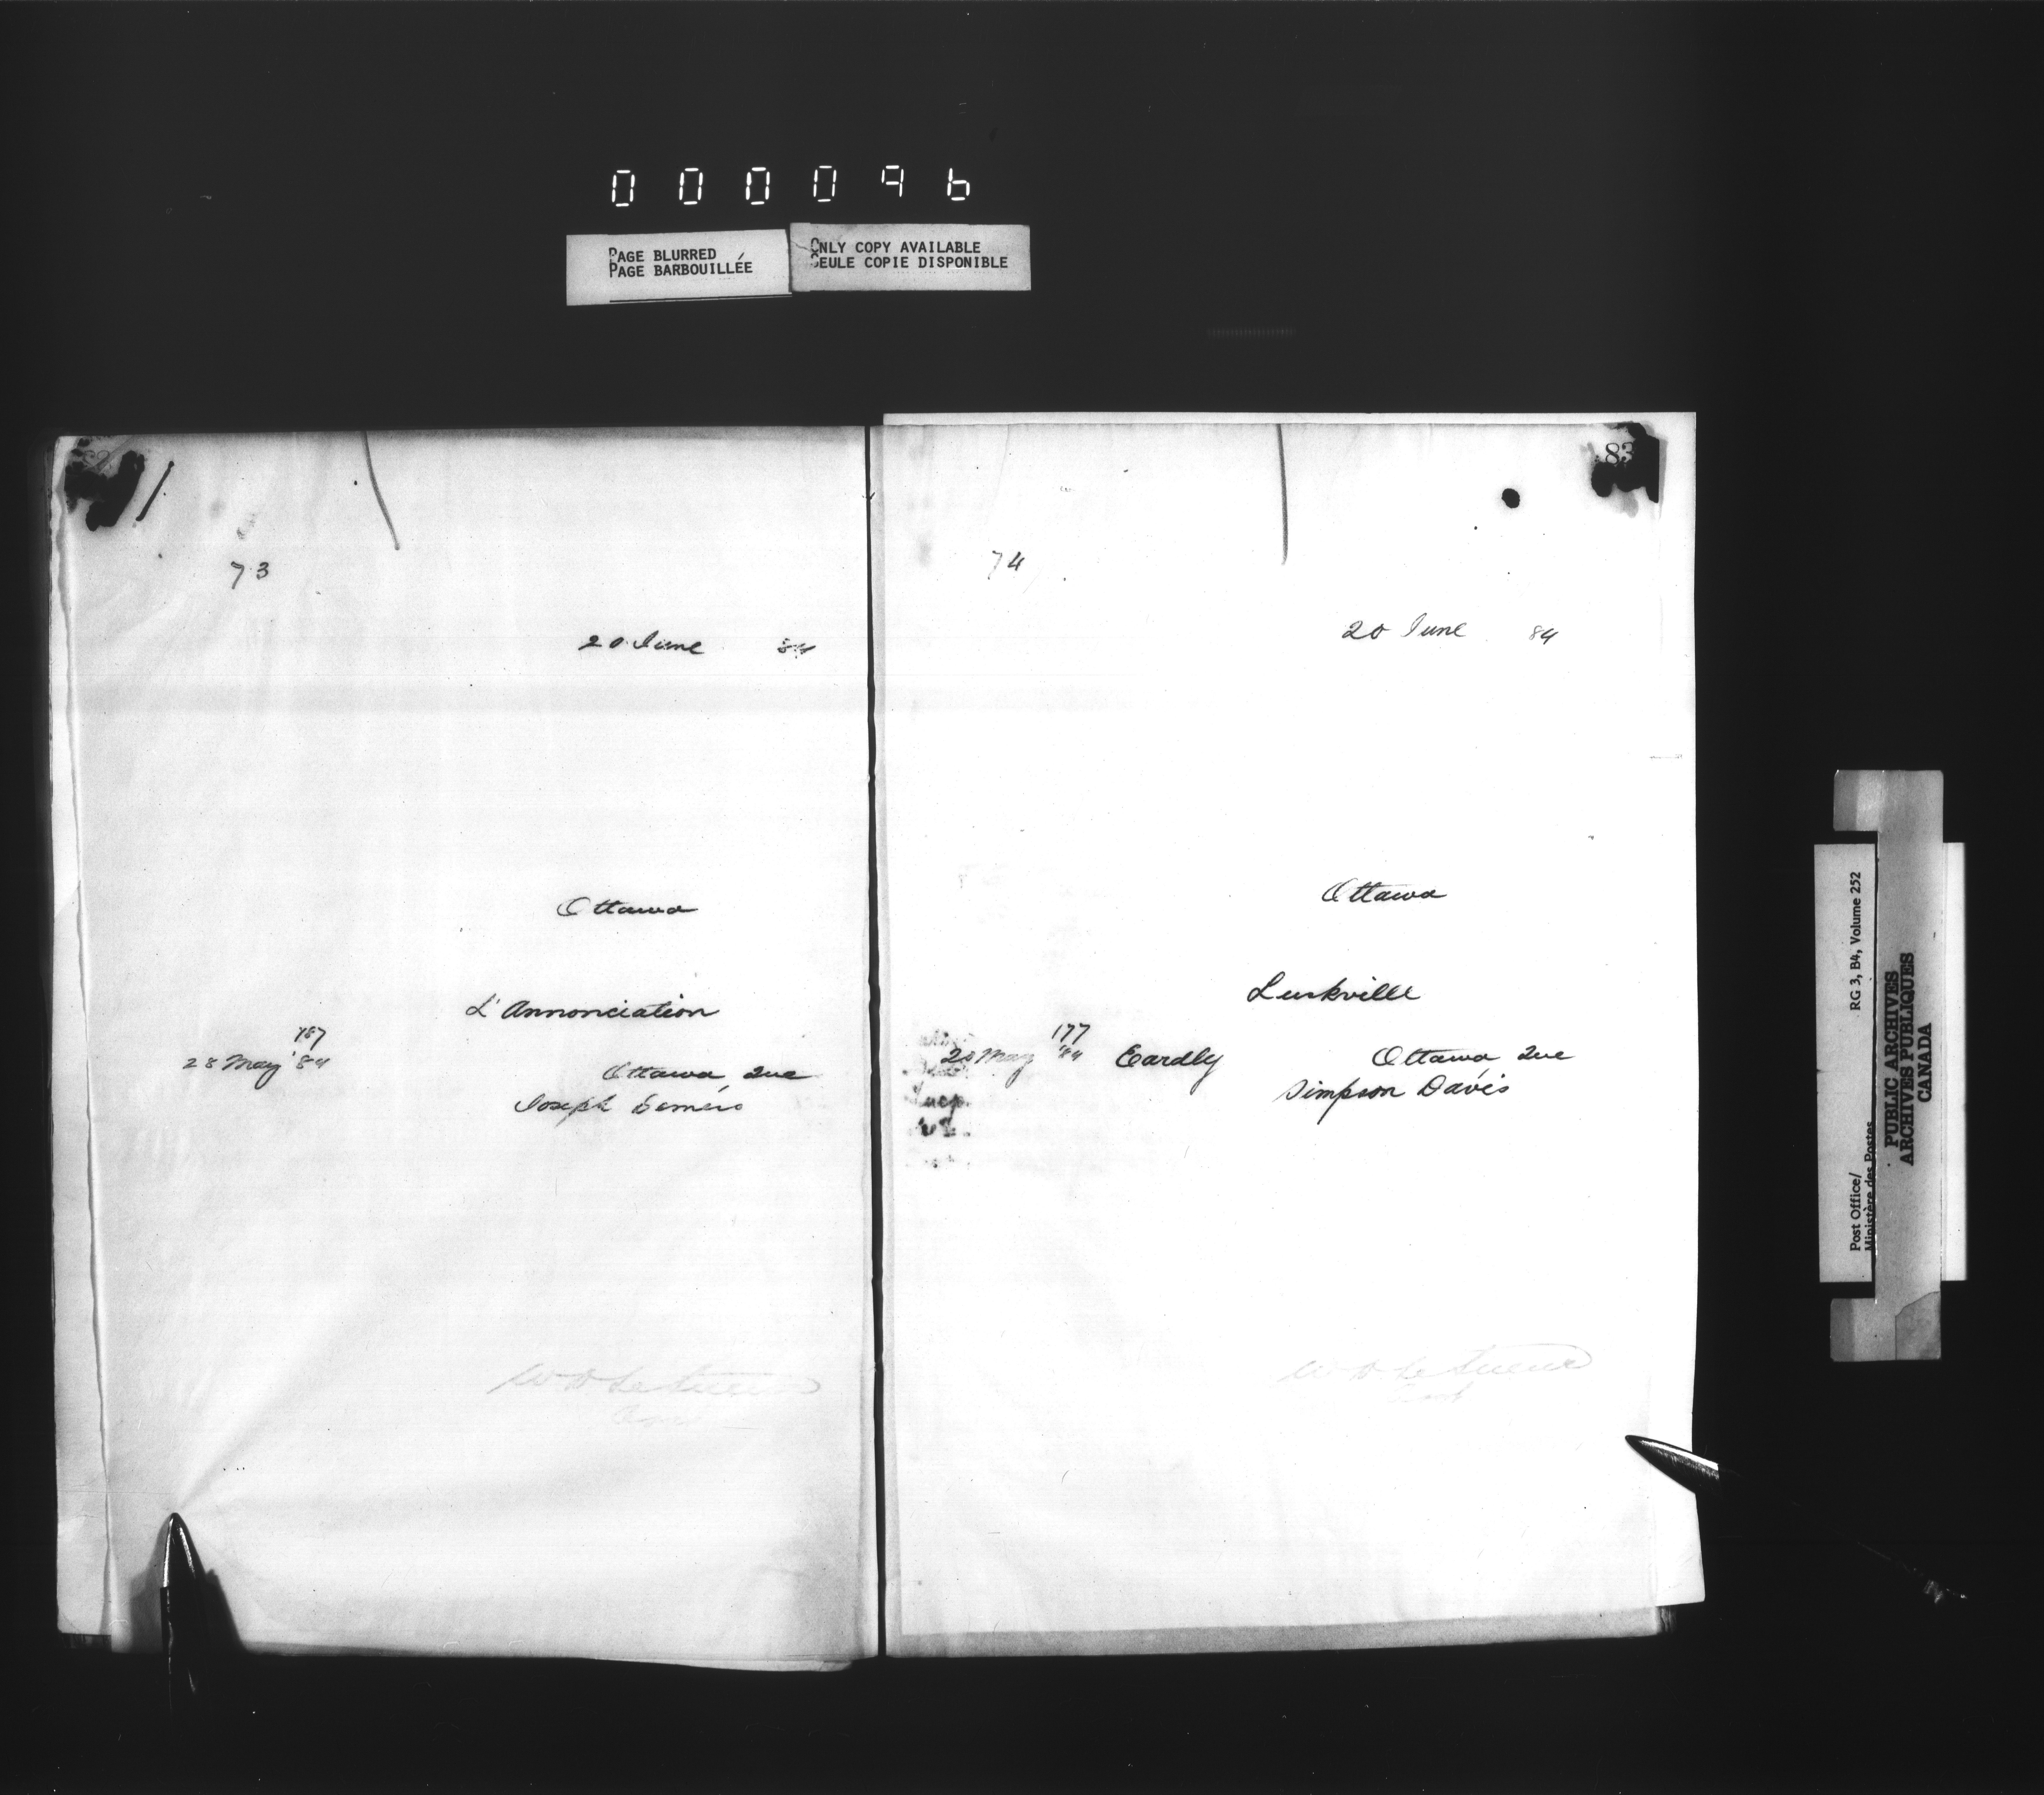 000096
PAGE BLURRED
PAGE BARBOUILLÉE
ONLY COPY AVAILABLE
SEULE COPIE DISPONIBLE
73
20 June 84
Ottawa
L'Annonciation
187
28 May '84
Ottawa, Que
Joseph Demers
W D LeSueur
83
74
20 June 84
Ottawa
Luskville
177
May '84 Eardly Ottawa, Que
Simpson Davis
W D LeSueur
Post Office/
Ministère des Postes
RG 3, B4, Volume 252
PUBLIC ARCHIVES
ARCHIVES PUBLIQUES
CANADA